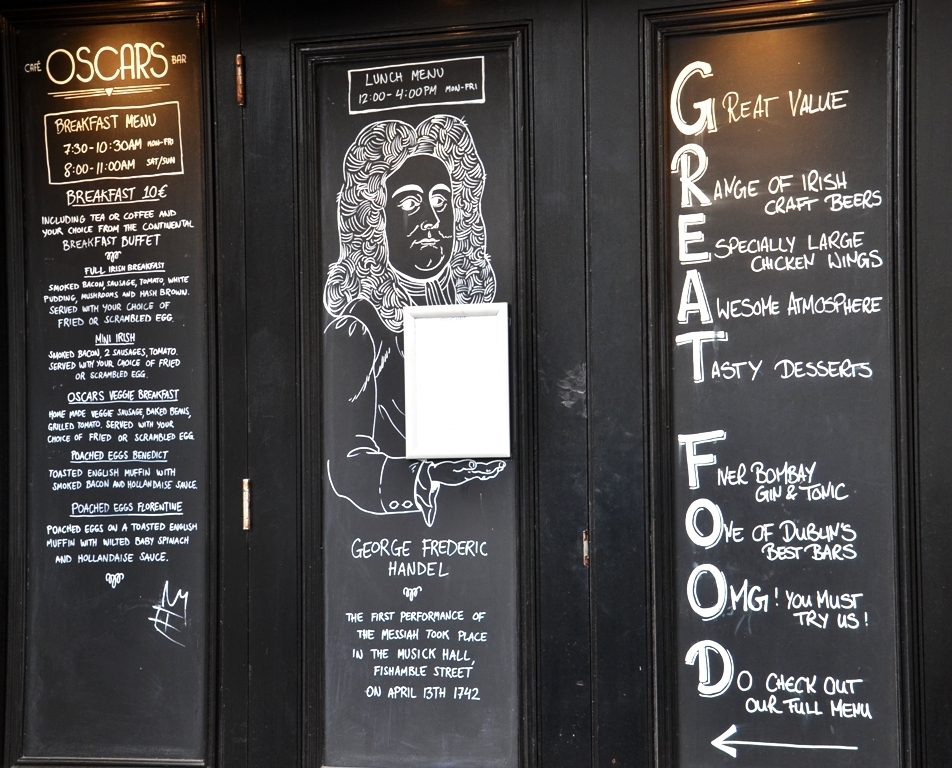 CAFÉ OSCARS BAR
BREAKFAST MENU
7:30-10:30AM MON-FRI
8:00-11:00AM SAT/SUN
BREAKFAST 10€
INCLUDING TEA OR COFFEE AND
YOUR CHOICE FROM THE CONTINENTAL
BREAKFAST BUFFET
FULL IRISH BREAKFAST
SMOKED BACON, SAUSAGE, TOMATO, WHITE
PUDDING, MUSHROOMS AND HASH BROWN.
SERVED WITH YOUR CHOICE OF
FRIED OR SCRAMBLED EGG.
MINI IRISH
SMOKED BACON, 2 SAUSAGES, TOMATO.
SERVED WITH YOUR CHOICE OF FRIED
OR SCRAMBLED EGG.
OSCARS VEGGIE BREAKFAST
HOME MADE VEGGIE SAUSAGE, BAKED BEANS,
GRILLED TOMATO. SERVED WITH YOUR
CHOICE OF FRIED OR SCRAMBLED EGG.
POACHED EGGS BENEDICT
TOASTED ENGLISH MUFFIN WITH
SMOKED BACON AND HOLLANDAISE SAUCE.
POACHED EGGS FLORENTINE
POACHED EGGS ON A TOASTED ENGLISH
MUFFIN WITH WILTED BABY SPINACH
AND HOLLANDAISE SAUCE.
LUNCH MENU
12:00-4:00PM MON-FRI
GEORGE FREDERIC
HANDEL
THE FIRST PERFORMANCE OF
THE MESSIAH TOOK PLACE
IN THE MUSICK HALL,
FISHAMBLE STREET
ON APRIL 13TH 1742
GREAT VALUE
RANGE OF IRISH
CRAFT BEERS
ESPECIALLY LARGE
CHICKEN WINGS
AWESOME ATMOSPHERE
TASTY DESSERTS
FIVER BOMBAY
GIN & TONIC
ONE OF DUBLIN'S
BEST BARS
OMG! YOU MUST
TRY US!
DO CHECK OUT
OUR FULL MENU